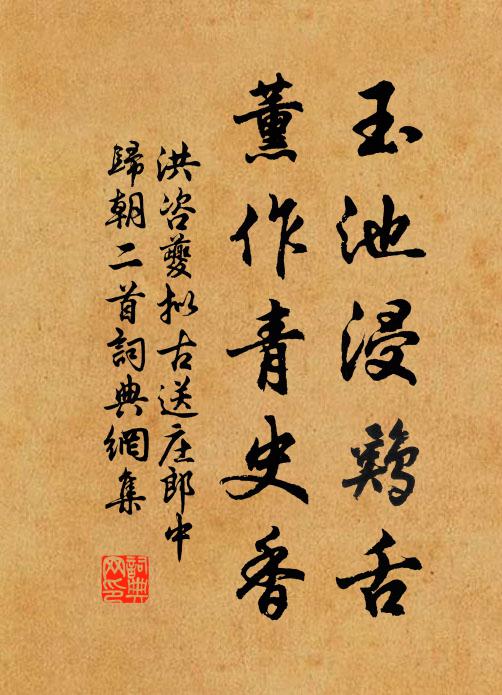 玉池浸鷄舌
薰作青史香
洪咨夔拟古送庄郎中
歸朝二首詞典網集
詞典網印